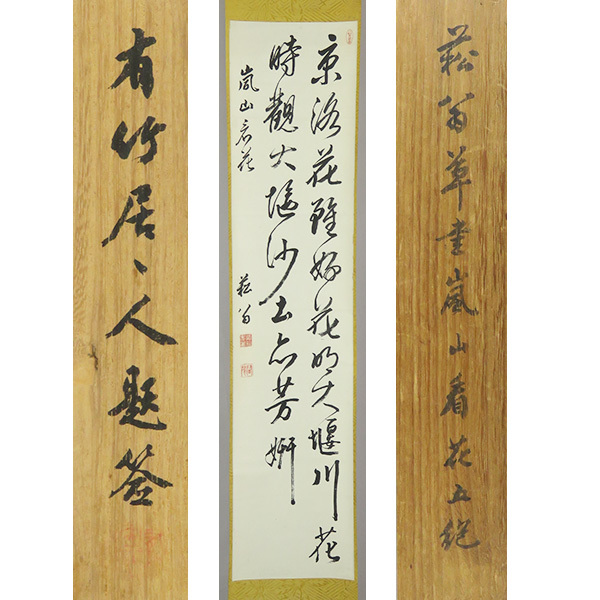 菘翁草書嵐山看花五絶
京洛花雖好花明大堰川花
時觀大堰沙土亦芳妍
嵐山看花
菘翁
有竹居〻人題簽